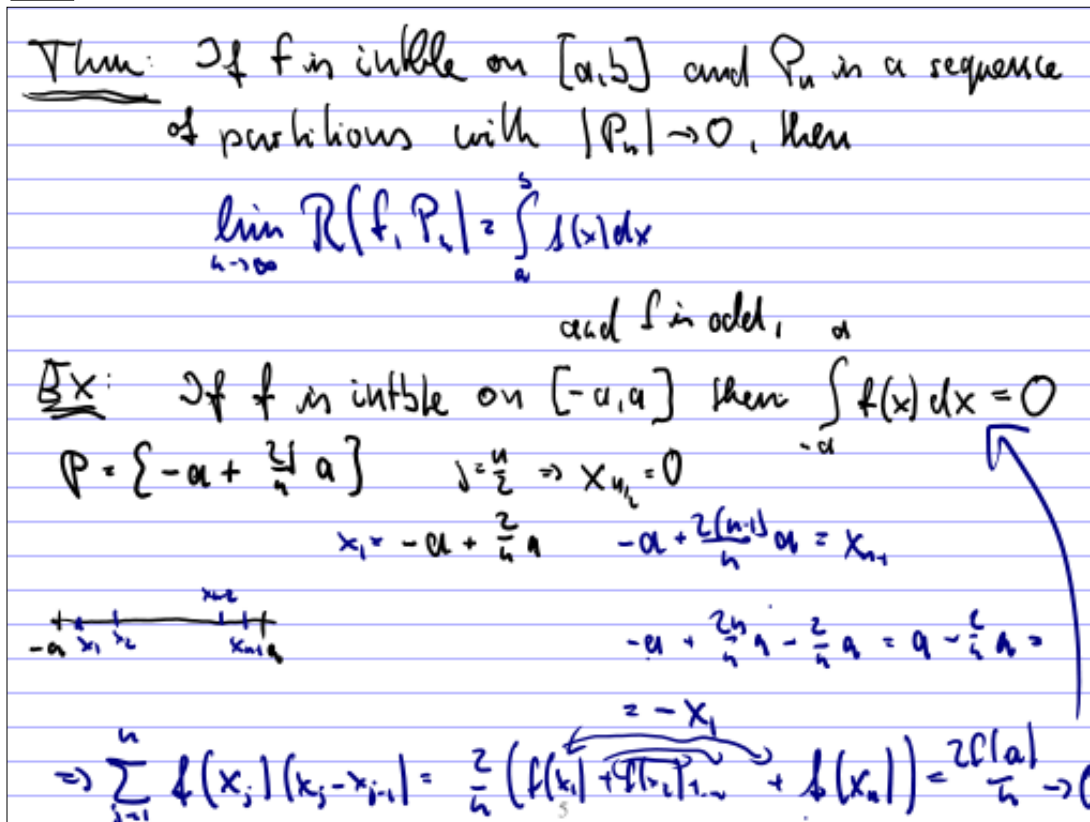 Thm: If f is intble on [a,b] and Pₙ is a sequence
of partitions with |Pₙ| → 0, then
lim n→∞ R(f, Pₙ) = ∫ₐᵇ f(x) dx
and f is odd,
Ex: If f is intble on [-a,a] then ∫₋ₐᵃ f(x) dx = 0
P = { -a + 2j/n a } j = n/2 ⇒ x_{n/2} = 0
x₁ = -a + 2/n a -a + 2(n-1)/n a = x_{n-1}
-a x₁ x₂ x_{n-2} x_{n-1} a
-a + 2n/n a - 2/n a = a - 2/n a =
= -x₁
⇒ ∑_{j=1}^{n} f(x_j)(x_j - x_{j-1}) = 2/n (f(x₁) + f(x₂) + ... + f(xₙ)) = 2f(a)/n → 0
5